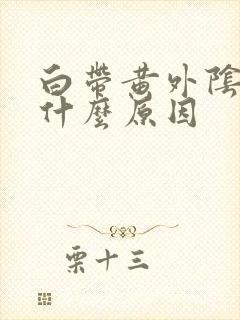 白帶黃外陰
什麼原因
栗十三